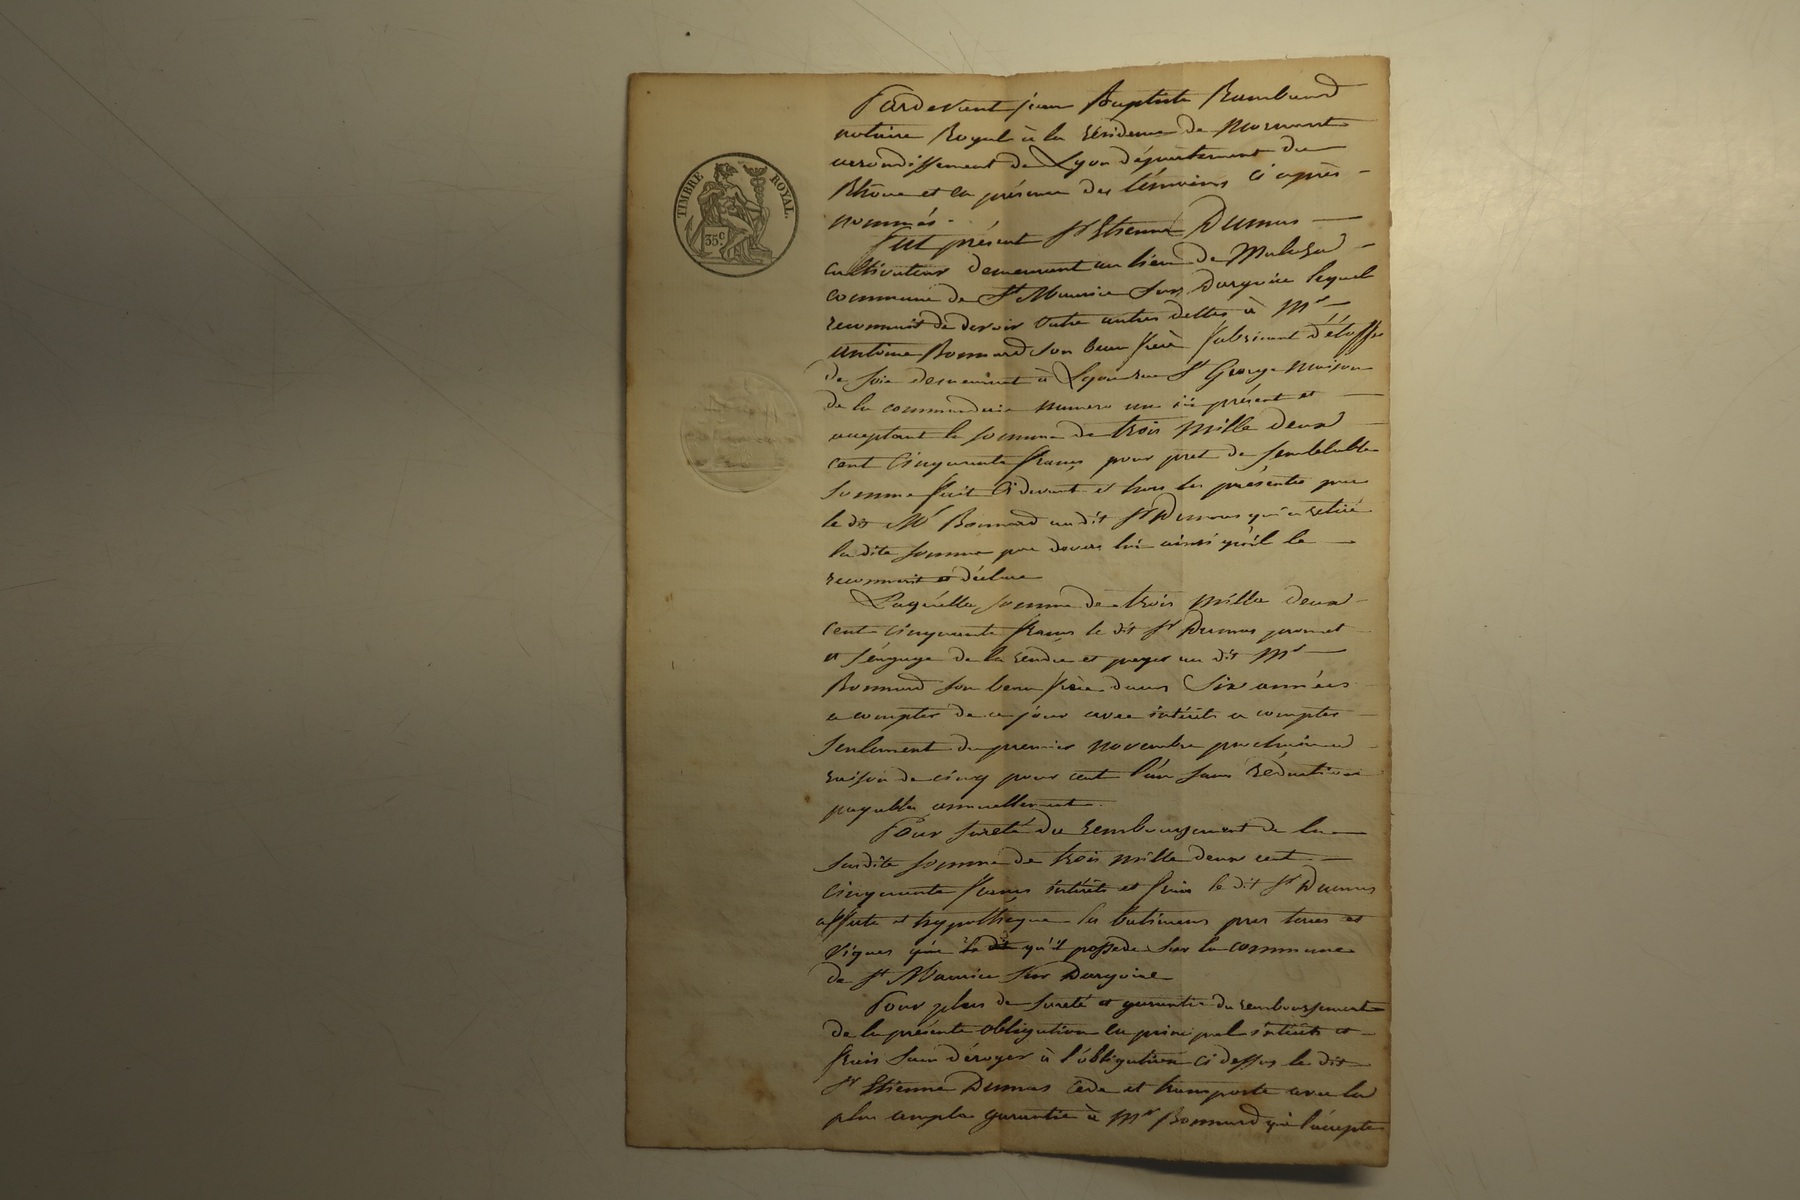 TIMBRE ROYAL.
35 C
Pardevant jean Baptiste Rambaud
notaire Royal à la résidence de Mornant
arrondissement de Lyon département du
Rhône et en présence des témoins ci après
nommés.
fut présent Sr Etienne Dumas
cultivateur demeurant au lieu de
commune de St Maurice Sur Dargoire lequel
reconnait de devoir outre autres dettes à Mr
antoine Bonnard son beau frère fabricant d'étoffe
de soie demeurant à Lyon rue St George maison
de la commanderie numero un ici présent et
acceptant la somme de trois mille deux
cent cinquante francs pour pret de semblable
somme fait ci devant et hors les présentes par
le dit Mr Bonnard au dit Sr Dumas qui a retiré
la dite somme par devers lui ainsi qu'il le
reconnait et déclare
Laquelle somme de trois mille deux
cent cinquante francs le dit Sr Dumas promet
et s'engage de la rendre et payer au dit Mr
Bonnard son beau frère dans Six années
a compter de ce jour avec intérêts a compter
seulement du premier novembre prochain a
raison de cinq pour cent l'an sans réduction
payable annuellement.
Pour sureté du remboursement de la
susdite somme de trois mille deux cent
cinquante francs intérêts et frais le dit Sr Dumas
affecte et hypothèque les batimens pres terres et
vignes qu'il possede sur la commune
de St Maurice sur Dargoire
Pour plus de sureté et garantie du remboursement
de la présente obligation en principal intérêts et
frais sans déroger à l'obligation ci dessus le dit
Sr Etienne Dumas cède et transporte avec la
plus ample garantie à Mr Bonnard qui l'accepte